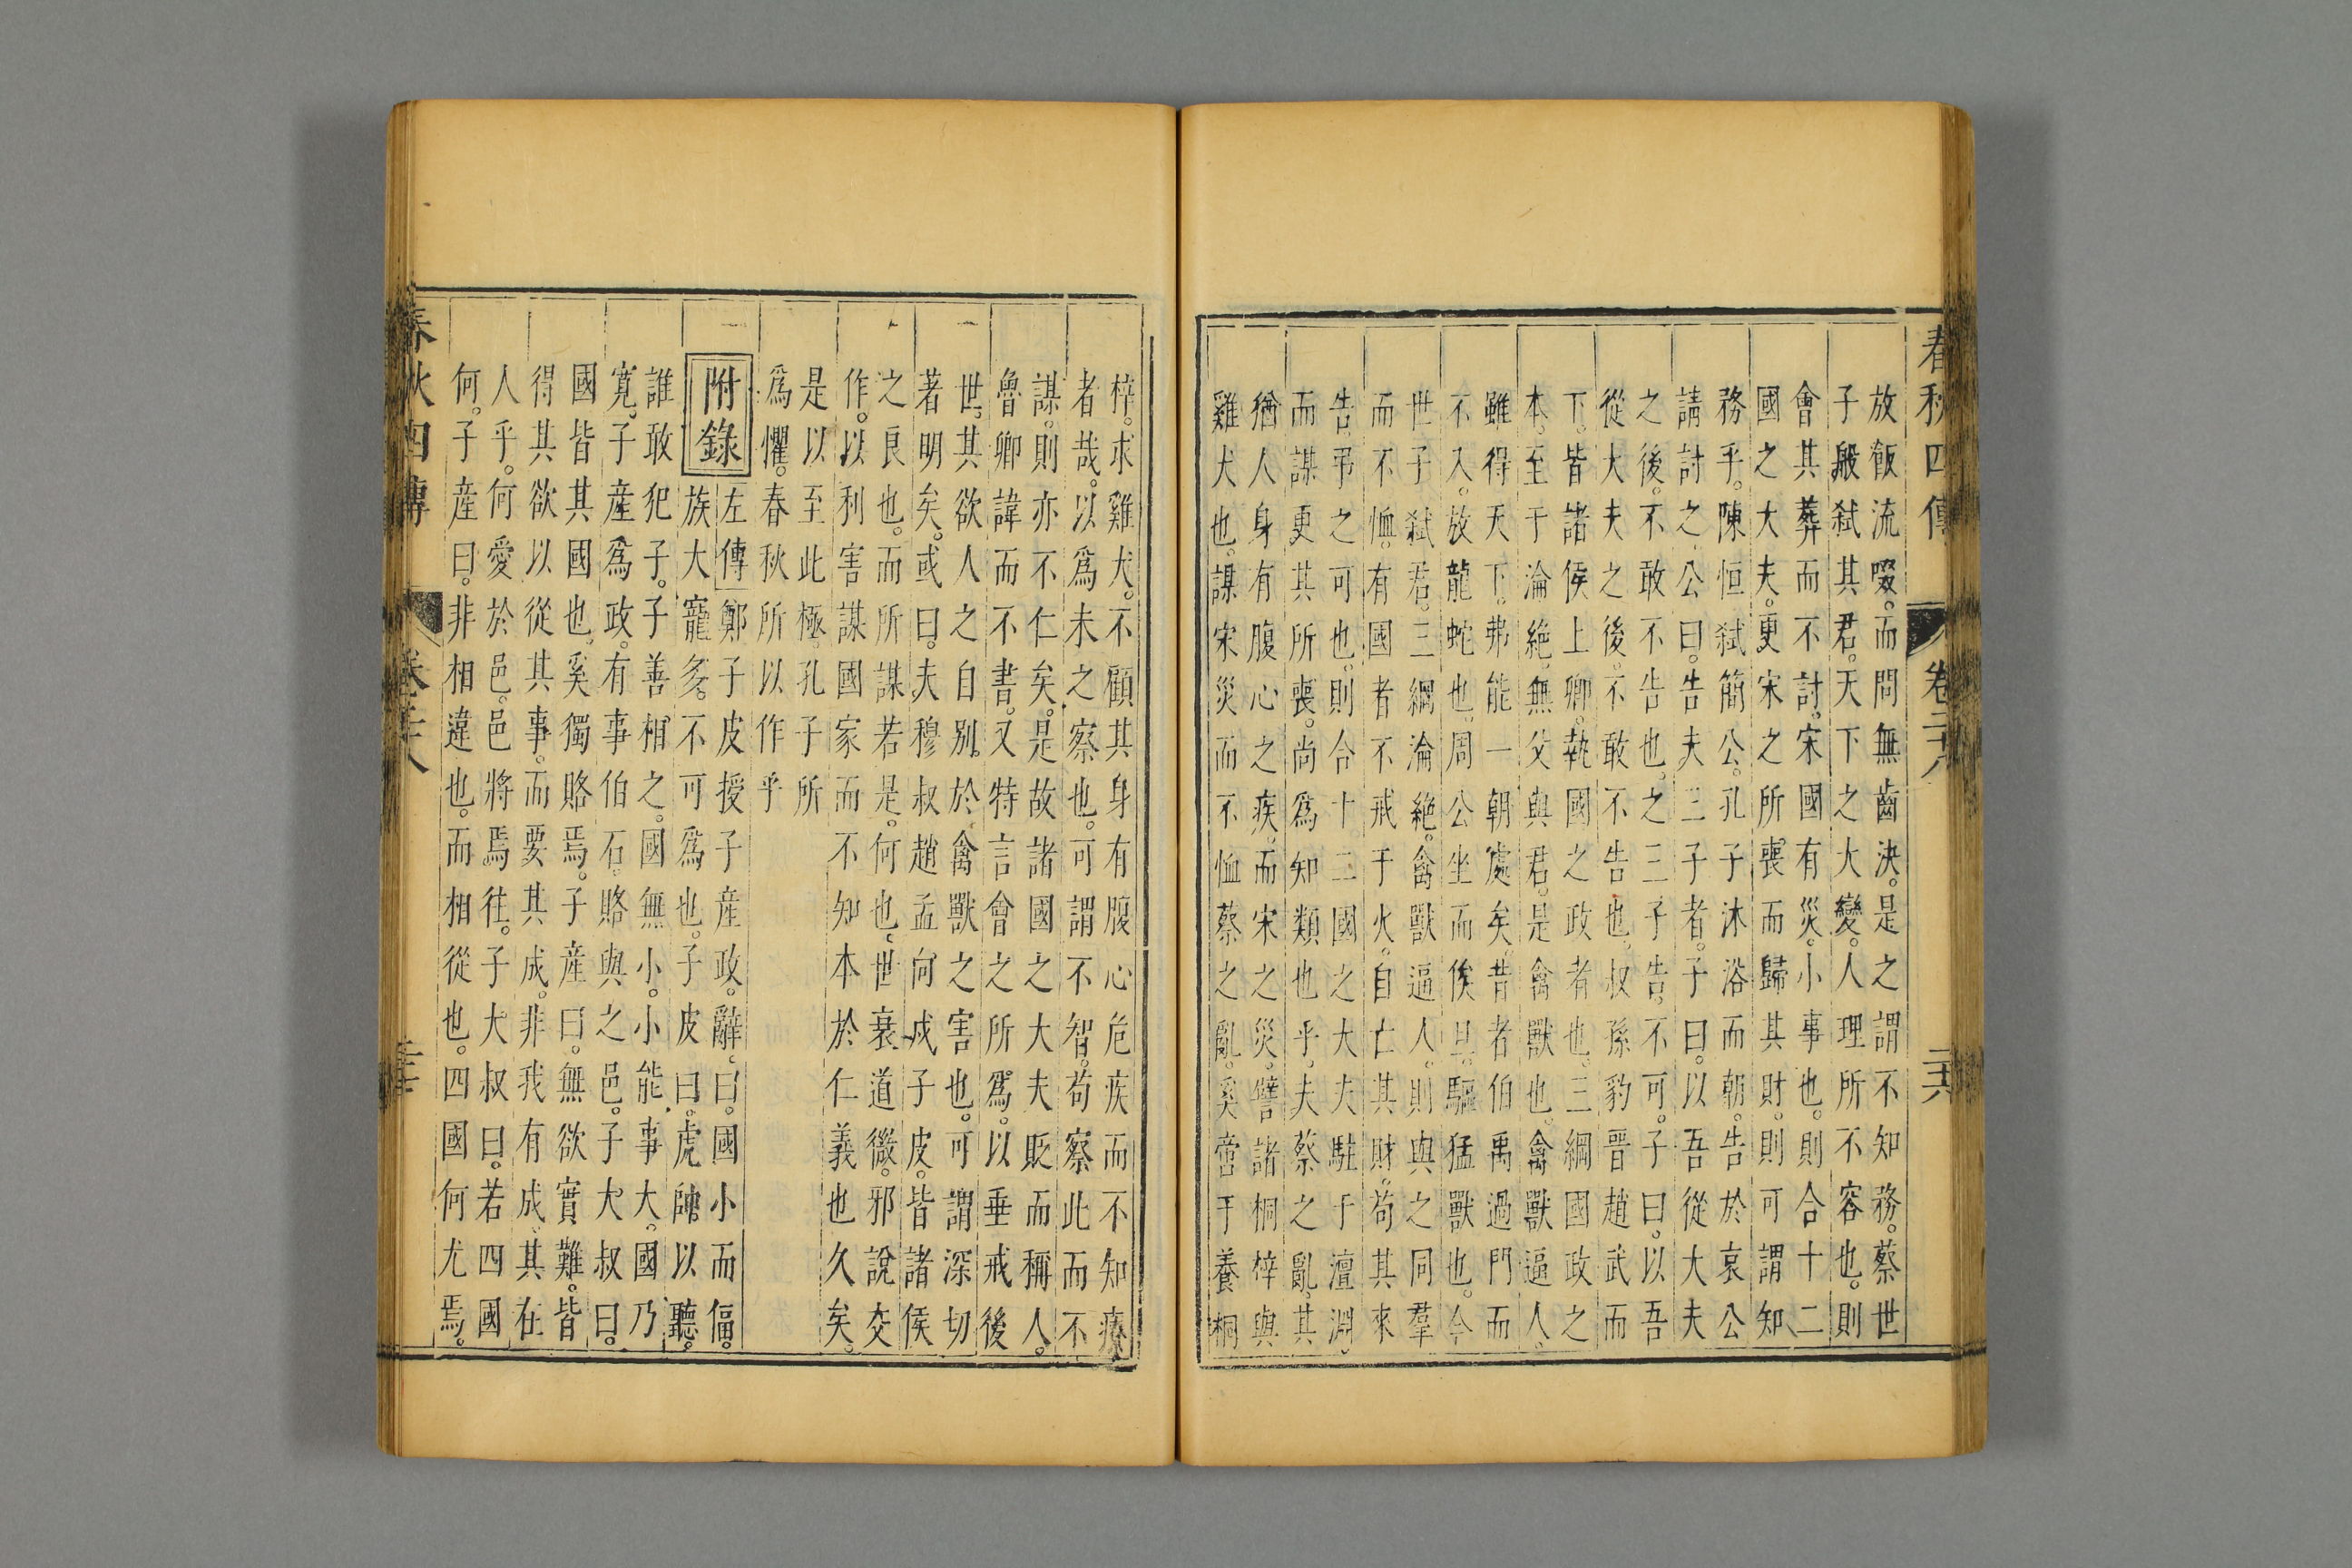 春秋四傳 卷二十八 二十六
放飯流啜。而問無齒決。是之謂不知務。蔡世
子般弑其君。天下之大變。人理所不容也。則
會其葬而不討。宋國有災。小事也。則合十二
國之大夫。更宋之所喪而歸其財。則可謂知
務乎。陳恒弑簡公。孔子沐浴而朝。告於哀公
請討之。公曰。告夫三子者。子曰。以吾從大夫
之後。不敢不告也。之三子告。不可。子曰。以吾
從大夫之後。不敢不告也。叔孫豹晉趙武而
下。皆諸侯上卿。執國之政者也。三綱國政之
本。至于淪絶。無父與君。是禽獸也。禽獸逼人。
雖得天下。弗能一朝處矣。昔者伯禹過門而
不入。放龍蛇也。周公坐而俟旦。驅猛獸也。今
世子弑君。三綱淪絶。禽獸逼人。則與之同羣
而不恤。有國者不戒于火。自亡其財。苟其來
告。弔之可也。則合十二國之大夫駐于澶淵。
而謀更其所喪。尚爲知類也乎。夫蔡之亂。其
猶人身有腹心之疾。而宋之災。譬諸桐梓與
雞犬也。謀宋災而不恤蔡之亂。奚啻于養桐
梓。求雞犬。不顧其身有腹心危疾而不知療
者哉。以爲未之察也。可謂不智。苟察此而不
謀。則亦不仁矣。是故諸國之大夫貶而稱人。
魯卿諱而不書。又特言會之所爲。以垂戒後
世。其欲人之自別。於禽獸之害也。可謂深切
著明矣。或曰。夫穆叔趙孟向戌子皮。皆諸侯
之良也。而所謀若是。何也。世衰道微。邪說交
作。以利害謀國家而不知本於仁義也久矣。
是以至此極。孔子所
爲懼。春秋所以作乎
附錄 左傳 鄭子皮授子産政。辭。曰。國小而偪。
族大寵多。不可爲也。子皮曰。虎帥以聽。
誰敢犯子。子善相之。國無小。小能事大。國乃
寛。子産爲政。有事伯石。賂與之邑。子大叔曰。
國皆其國也。奚獨賂焉。子産曰。無欲實難。皆
得其欲以從其事。而要其成。非我有成。其在
人乎。何愛於邑。邑將焉往。子大叔曰。若四國
何。子産曰。非相違也。而相從也。四國何尤焉。
春秋四傳 卷二十八